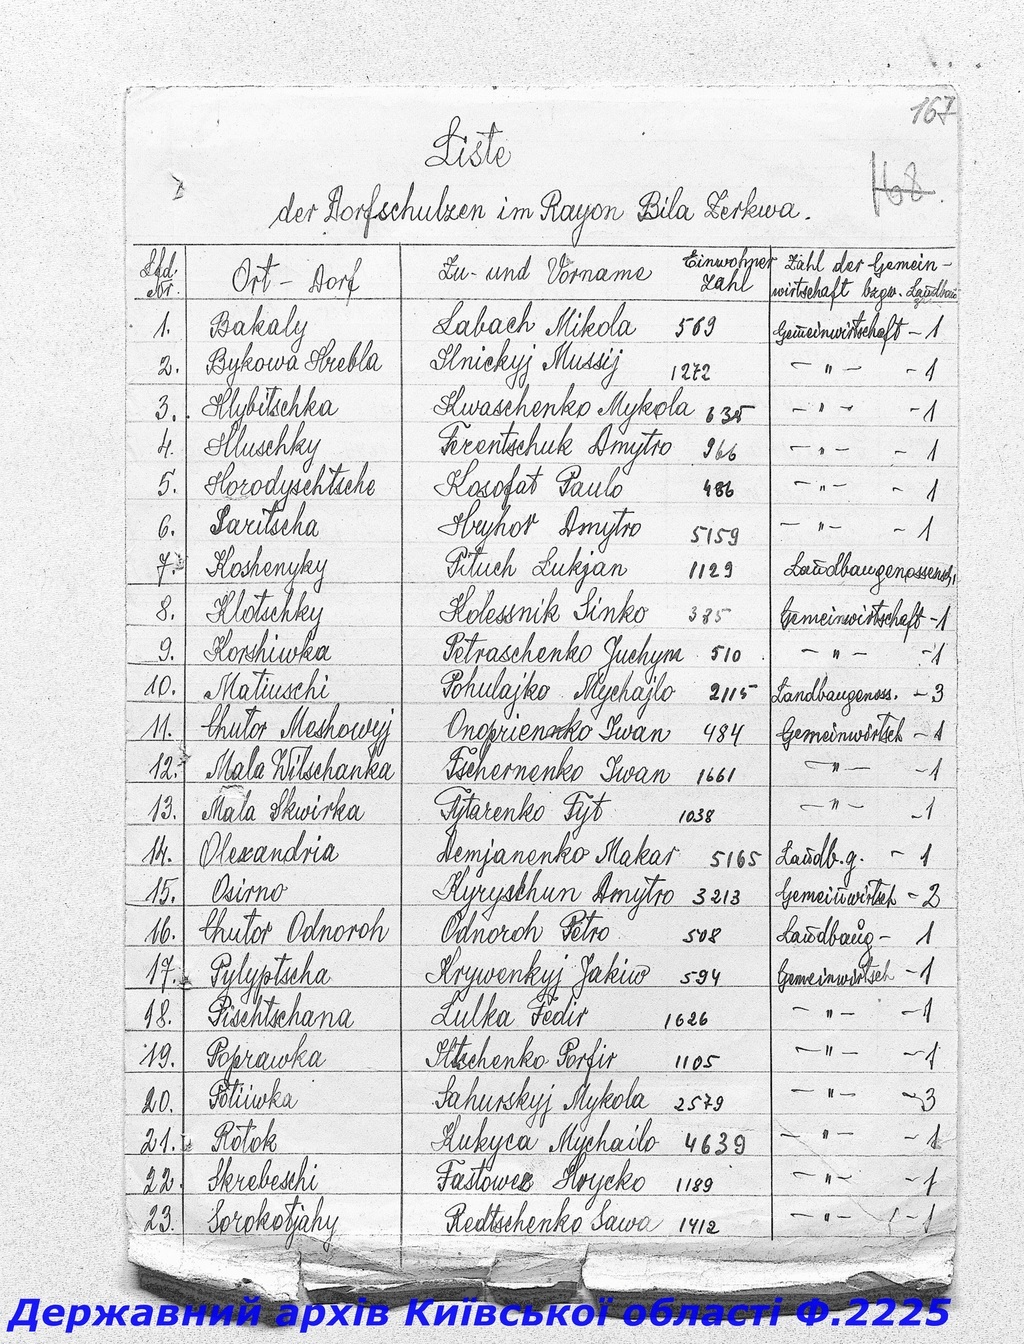 167
Liste
168.
der Dorfschulzen im Rayon Bila Zerkwa.
Lfd. Nr. Ort - Dorf Zu- und Vorname Einwohner Zahl Zahl der Gemein- wirtschaft bzgw. Landbau
1. Bakaly Labach Mikola 569 Gemeinwirtschaft - 1
2. Bykowa Hrebla Ilnickyj Mussij 1272 - " - - 1
3. Hlybitschka Kwaschenko Mykola 635 - " - - 1
4. Hluschky Terentschuk Dmytro 966 - " - - 1
5. Horodyschtsche Kosofat Paulo 486 - " - - 1
6. Saritscha Hryhor Dmytro 5159 - " - - 1
7. Koshenyky Pituch Lukjan 1129 Landbaugenossensch. 1
8. Klotschky Kolessnik Sinko 385 Gemeinwirtschaft - 1
9. Korshiwka Petraschenko Juchym 510 - " - - 1
10. Matiuschi Pohulajko Mychajlo 2115 Landbaugenoss. - 3
11. Chutor Meshowyj Onoprienko Iwan 484 Gemeinwirtsch - 1
12. Mala Wilschanka Tschernenko Iwan 1661 - " - - 1
13. Mala Skwirka Tytarenko Tyt 1038 - " - - 1
14. Olexandria Demjanenko Makar 5165 Landb.g. - 1
15. Osirno Kyryschun Dmytro 3213 Gemeinwirtsch - 2
16. Chutor Odnoroh Odnoroh Petro 508 Landbaug - 1
17. Pylyptscha Krywenkyj Jakiw 594 Gemeinwirtsch - 1
18. Pischtschana Lulka Fedir 1626 - " - - 1
19. Poprawka Iltschenko Porfir 1105 - " - - 1
20. Potiiwka Sahurskyj Mykola 2579 - " - - 3
21. Rotok Kukyca Mychailo 4639 - " - - 1
22. Skrebeschi Fastowez Hrycko 1189 - " - - 1
23. Sorokotjahy Redtschenko Sawa 1412 - " - - 1
Державний архів Київської області Ф.2225